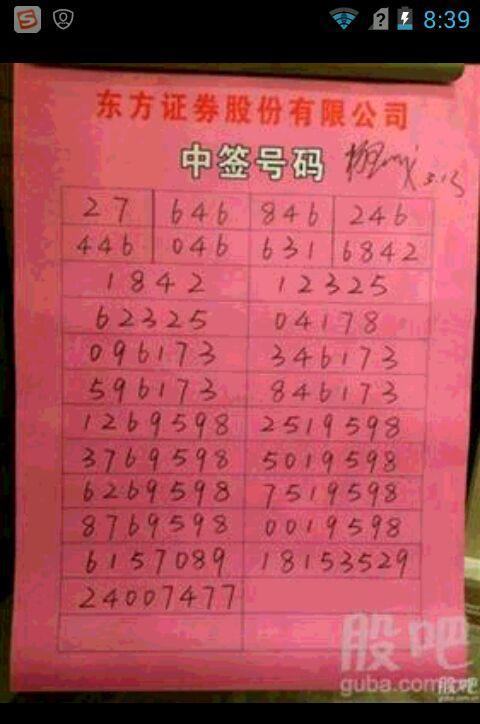 8:39
东方证券股份有限公司
中签号码 3.13
27 646 846 246
446 046 631 6842
1842 12325
62325 04178
096173 346173
596173 846173
1269598 2519598
3769598 5019598
6269598 7519598
8769598 0019598
6157089 18153529
24007477
股吧
guba.com
股吧